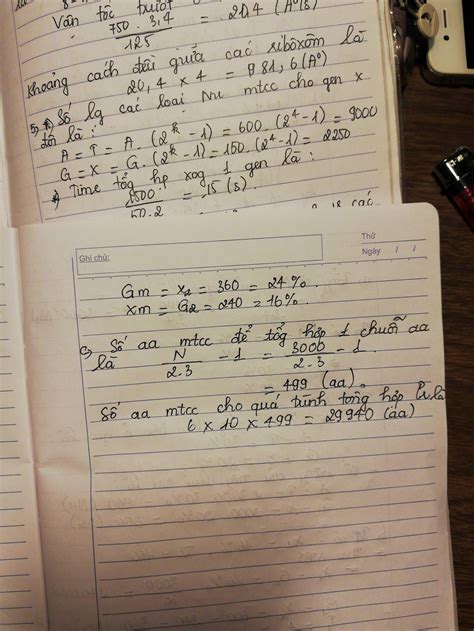 Vận tốc trượt
750 . 3,4 / 125 = 20,4 (A°/s)
Khoảng cách đều giữa các ribôxôm là
20,4 x 4 = 81,6 (A°)
5, a) Số lg các loại Nu mtcc cho gen x
đôi là :
A = T = A . (2^k - 1) = 600 . (2^4 - 1) = 9000
G = X = G . (2^k - 1) = 150 . (2^4 - 1) = 2250
Time tổg hp xog 1 gen là :
1500 / 50.2 = 15 (s).
Thứ
Ghi chú:
Ngày / /
Gm = X2 = 360 = 24%.
Xm = G2 = 240 = 16%.
c) Số aa mtcc để tổg hợp 1 chuỗi aa
là N / 2.3 - 1 = 3000 / 2.3 - 1
= 499 (aa).
Số aa mtcc cho quá trình tổng hợp là
6 x 10 x 499 = 29940 (aa)